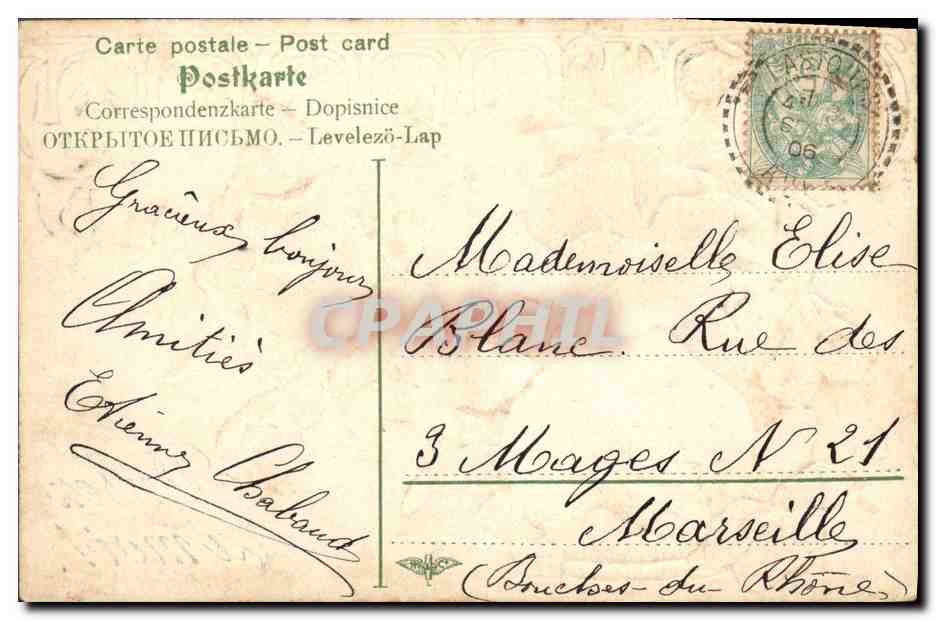 Carte postale – Post card
Postkarte
Correspondenzkarte – Dopisnice
ОТКРЫТОЕ ПИСЬМО. – Levelezö-Lap
Gracieux bonjour
Amitiés
Etienne Chabaud
Mademoiselle Elise
Blanc. Rue des
3 Mages N 21
Marseille
(Bouches-du-Rhône)
4
S
06
CPAPHIL